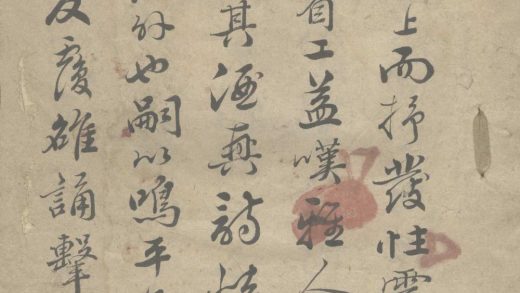 上而抒發性靈
工益嘆雅人
其酒與詩
也嗣以鳴平
覆雄誦擊